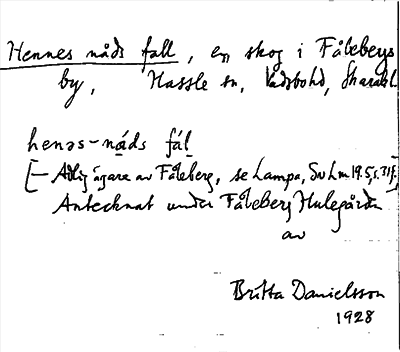 Hennes nåds fall, en skog i Fåleberg
by, Hassle sn, Vadsbo hd, Skarabl.
henəs-nåds fål
[– Adlig ägare av Fåleberg, se Lampa, Sv Lm 19.5, s. 31f.]
Antecknat under Fåleberg Hulegården
av
Britta Danielsson
1928